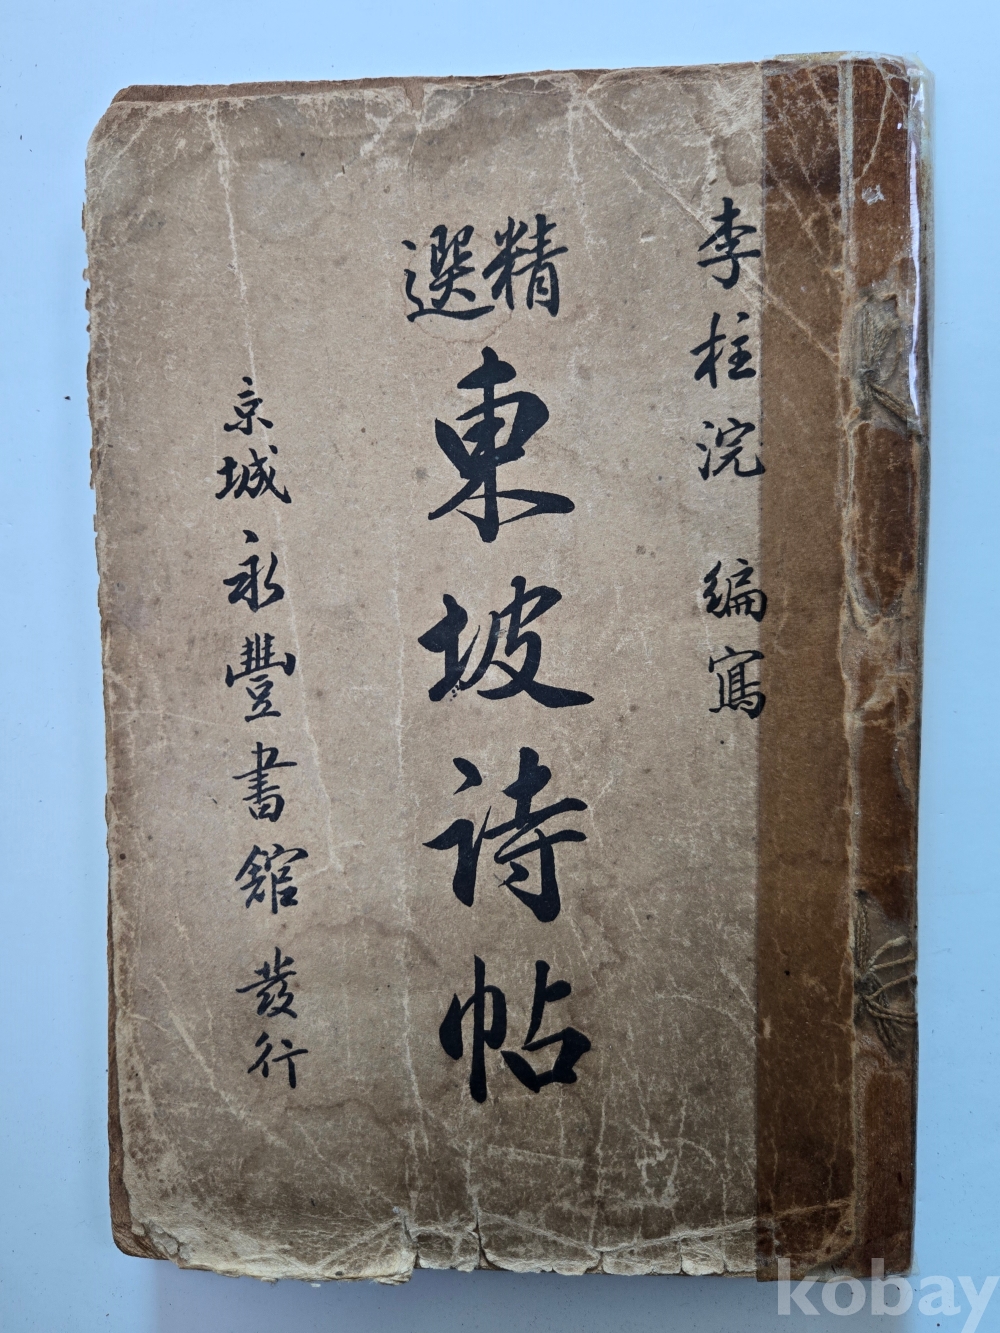 李柱浣 編寫
精選
東坡诗帖
京城永豐書館發行
kobay